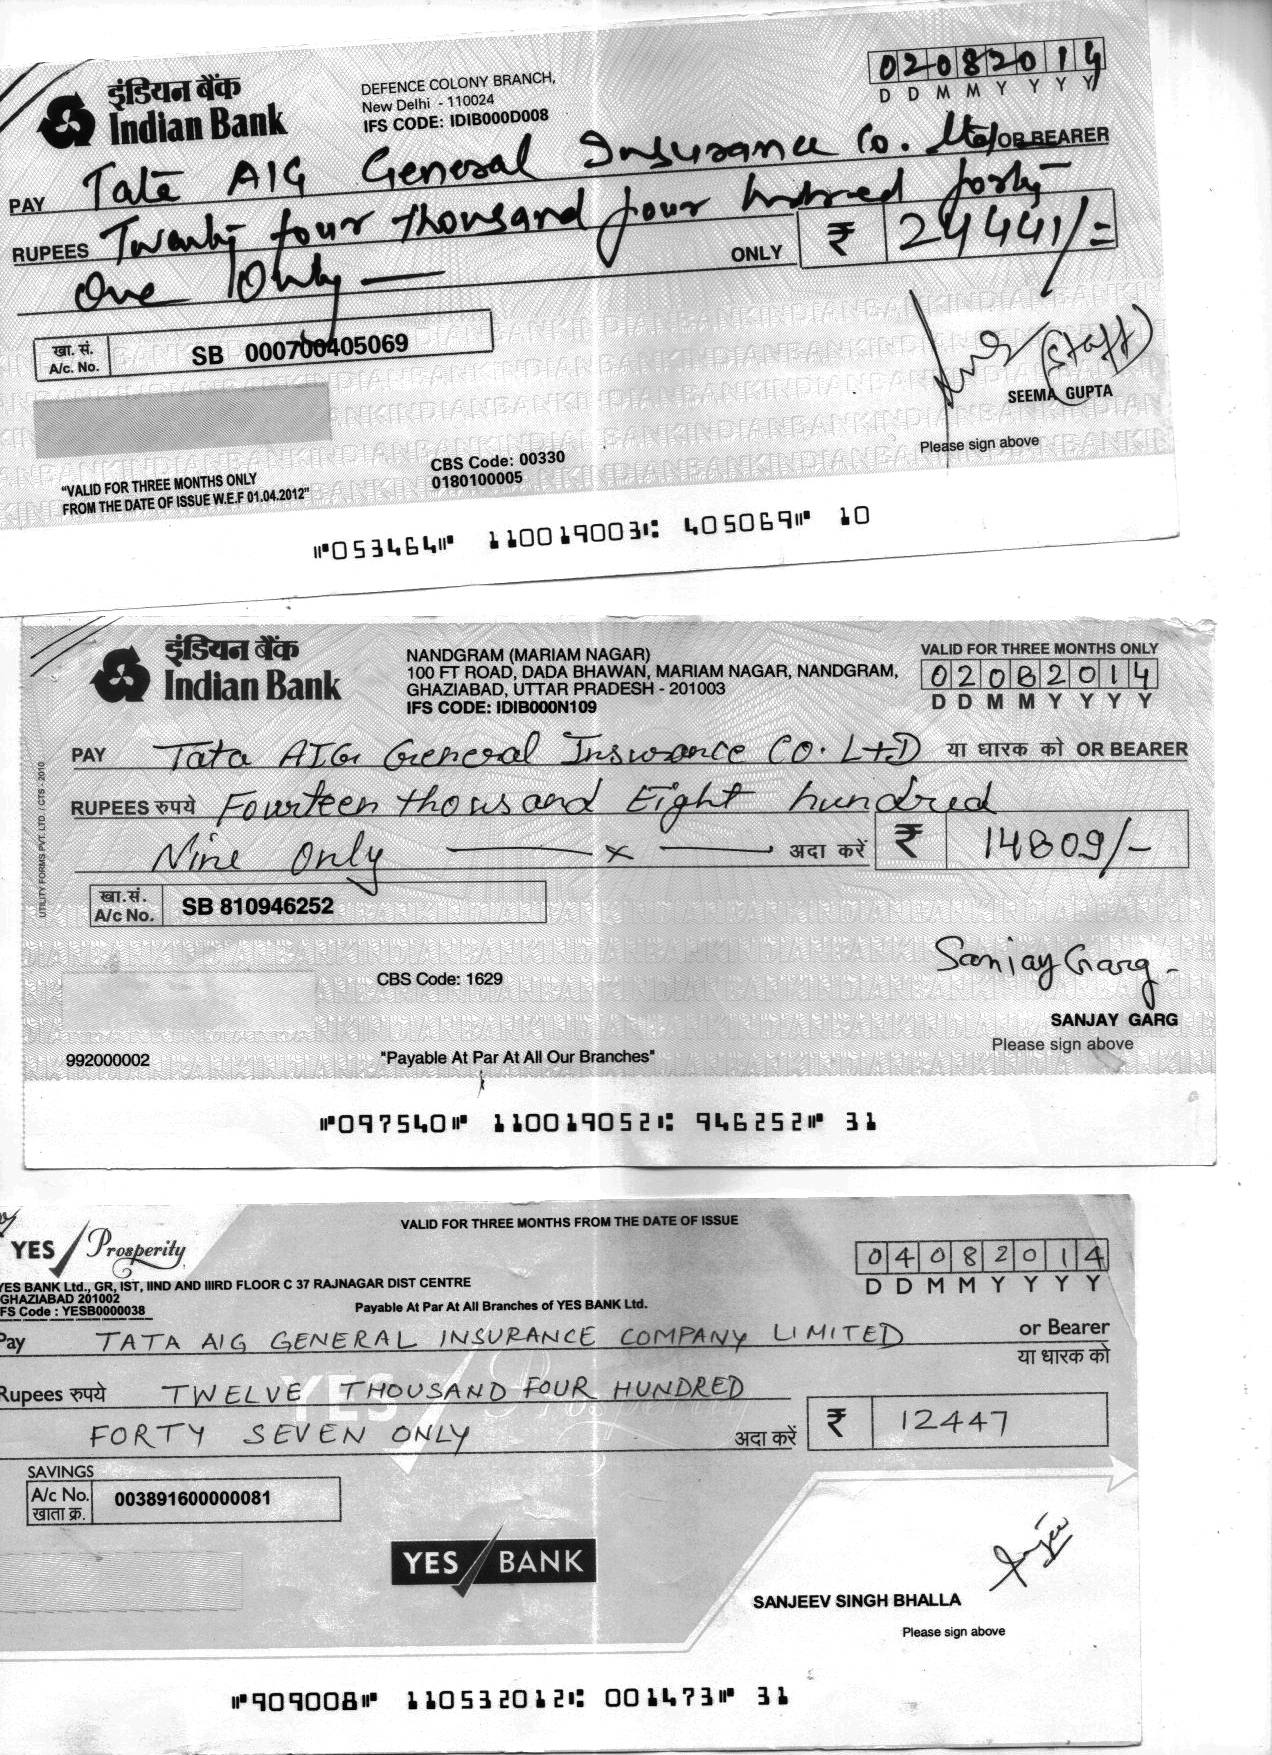 इंडियन बैंक
Indian Bank
DEFENCE COLONY BRANCH,
New Delhi - 110024
IFS CODE: IDIB000D008
02082014
D D M M Y Y Y Y
PAY Tata AIG General Insurance Co. Ltd OR BEARER
RUPEES Twenty four thousand four hundred forty
One Only ONLY ₹ 24441/=
खा. सं.
A/c. No. SB 000700405069
(Staff)
SEEMA GUPTA
Please sign above
CBS Code: 00330
0180100005
"VALID FOR THREE MONTHS ONLY
FROM THE DATE OF ISSUE W.E.F 01.04.2012"
⑈053464⑈ 110019003⑆ 405069⑈ 10
इंडियन बैंक
Indian Bank
NANDGRAM (MARIAM NAGAR)
100 FT ROAD, DADA BHAWAN, MARIAM NAGAR, NANDGRAM,
GHAZIABAD, UTTAR PRADESH - 201003
IFS CODE: IDIB000N109
VALID FOR THREE MONTHS ONLY
02082014
D D M M Y Y Y Y
PAY Tata AIG General Insurance CO. LTD या धारक को OR BEARER
RUPEES रुपये Fourteen thousand Eight hundred
Nine Only x अदा करें ₹ 14809/-
खा.सं.
A/c No. SB 810946252
UTILITY FORMS PVT. LTD. / CTS - 2010
CBS Code: 1629
Sanjay Garg
SANJAY GARG
Please sign above
992000002 "Payable At Par At All Our Branches"
⑈097540⑈ 110019052⑆ 946252⑈ 31
VALID FOR THREE MONTHS FROM THE DATE OF ISSUE
YES Prosperity
04082014
D D M M Y Y Y Y
YES BANK Ltd., GR, IST, IIND AND IIIRD FLOOR C 37 RAJNAGAR DIST CENTRE
GHAZIABAD 201002
IFS Code : YESB0000038
Payable At Par At All Branches of YES BANK Ltd.
Pay TATA AIG GENERAL INSURANCE COMPANY LIMITED or Bearer
या धारक को
Rupees रुपये TWELVE THOUSAND FOUR HUNDRED
FORTY SEVEN ONLY अदा करें ₹ 12447
SAVINGS
A/c No. 003891600000081
खाता क्र.
YES BANK
SANJEEV SINGH BHALLA
Please sign above
⑈909008⑈ 110532012⑆ 001473⑈ 31